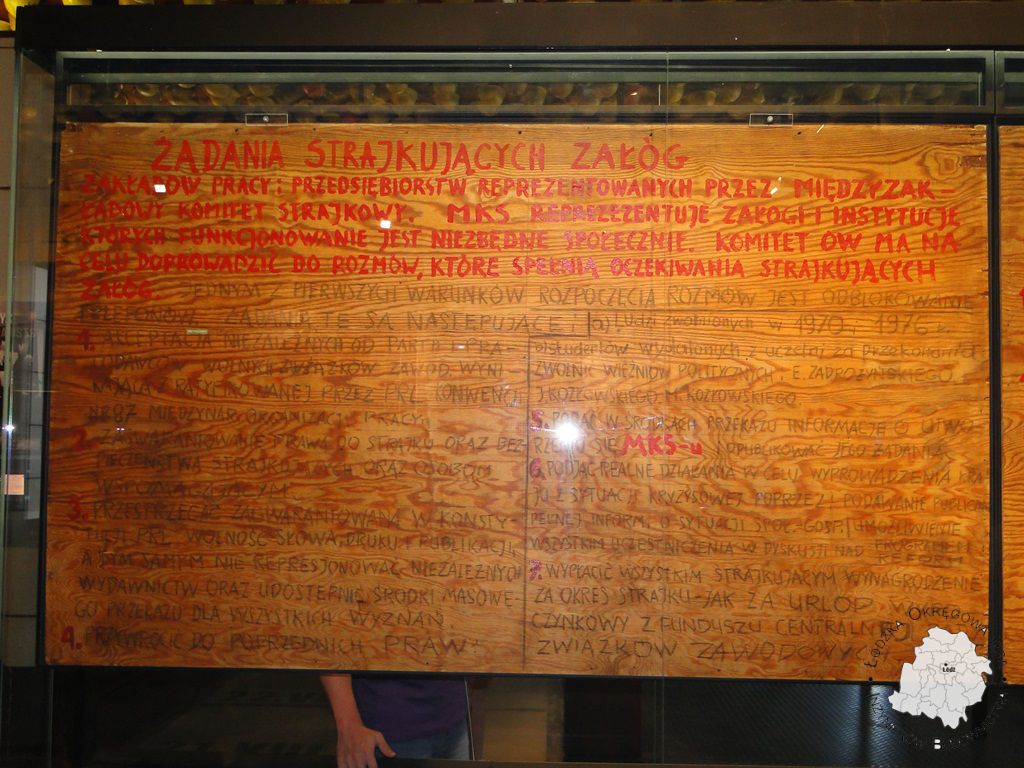 ŻĄDANIA STRAJKUJĄCYCH ZAŁÓG
ZAKŁADÓW PRACY I PRZEDSIĘBIORSTW REPREZENTOWANYCH PRZEZ MIĘDZYZAK-
ŁADOWY KOMITET STRAJKOWY. MKS REPREZEZENTUJE ZAŁOGI I INSTYTUCJE,
KTÓRYCH FUNKCJONOWANIE JEST NIEZBĘDNE SPOŁECZNIE. KOMITET ÓW MA NA
CELU DOPROWADZIĆ DO ROZMÓW, KTÓRE SPEŁNIĄ OCZEKIWANIA STRAJKUJĄCYCH
ZAŁÓG. JEDNYM Z PIERWSZYCH WARUNKÓW ROZPOCZĘCIA ROZMÓW JEST ODBLOKOWANIE
TELEFONÓW. ŻĄDANIA TE SĄ NASTĘPUJĄCE:
1. AKCEPTACJA NIEZALEŻNYCH OD PARTII I PRA-
CODAWCÓW WOLNYCH ZWIĄZKÓW ZAWOD. WYNI-
KAJĄCA Z RATYFIKOWANEJ PRZEZ PRL KONWENCJI
NR 87 MIĘDZYNAR. ORGANIZACJI PRACY.
2. ZAGWARANTOWANIE PRAWA DO STRAJKU ORAZ BEZ-
PIECZEŃSTWA STRAJKUJĄCYCH ORAZ OSOBOM
WSPOMAGAJĄCYM
3. PRZESTRZEGAĆ ZAGWARANTOWANĄ W KONSTY-
TUCJI PRL WOLNOŚĆ SŁOWA, DRUKU I PUBLIKACJI,
A TYM SAMYM NIE REPRESJONOWAĆ NIEZALEŻNYCH
WYDAWNICTW ORAZ UDOSTĘPNIĆ ŚRODKI MASOWE-
GO PRZEKAZU DLA WSZYSTKICH WYZNAŃ
4. PRZYWRÓCIĆ DO POPRZEDNICH PRAW:
a) Ludzi zwolnionych w 1970 i 1976 r.
studentów wydalonych z uczelni za przekonania
ZWOLNIĆ WIĘŹNIÓW POLITYCZNYCH: E. ZADROŻYŃSKIEGO,
J. KOZŁOWSKIEGO, M. KOZŁOWSKIEGO
5. PODAĆ W ŚRODKACH PRZEKAZU INFORMACJĘ O UTWO-
RZENIU SIĘ MKS-u I OPUBLIKOWAĆ JEGO ŻĄDANIA
6. PODJĄĆ REALNE DZIAŁANIA W CELU WYPROWADZENIA KRA-
JU Z SYTUACJI KRYZYSOWEJ POPRZEZ: PODAWANIE PUBLICZN.
PEŁNEJ INFORM. O SYTUACJI SPOŁ-GOSP. UMOŻLIWIENIE
WSZYSTKIM UCZESTNICZENIA W DYSKUSJI NAD PROGRAMEM
REFORM
7. WYPŁACIĆ WSZYSTKIM STRAJKUJĄCYM WYNAGRODZENIE
ZA OKRES STRAJKU-JAK ZA URLOP
CZYNKOWY Z FUNDUSZU CENTRALNEJ
ZWIĄZKÓW ZAWODOWYCH
ŁÓDZKA OKRĘGOWA
Łódź